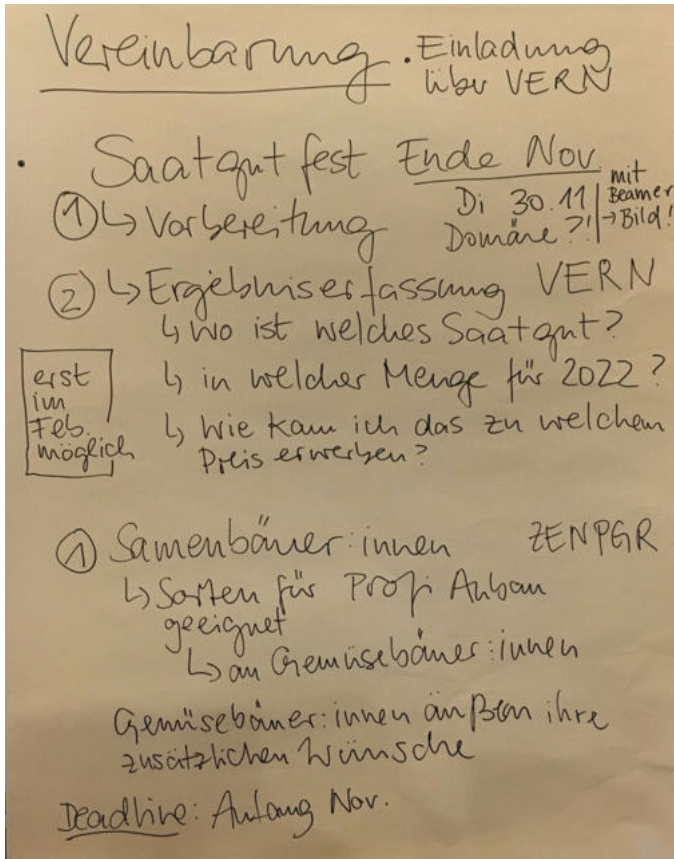 Vereinbarung . Einladung
über VERN
· Saatgutfest Ende Nov
① ↳ Vorbereitung Di 30.11 mit
Domäne ?! Beamer
→ Bild!
② ↳ Ergebniserfassung VERN
↳ wo ist welches Saatgut?
↳ in welcher Menge für 2022?
↳ Wie kann ich das zu welchem
Preis erwerben?
erst
im
Feb.
möglich
① Samenbäuer:innen ZENPGR
↳ Sorten für Profi Anbau
geeignet
↳ an Gemüsebäuer:innen
Gemüsebäuer:innen äußern ihre
zusätzlichen Wünsche
Deadline: Anfang Nov.